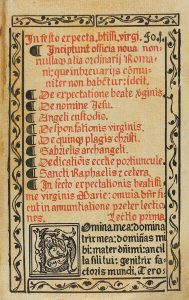 In festo expecta. btissi. virgi. fol.j
Incipiunt officia noua non
nulla alia ordinarij Roma
ni: que in breuiarijs cõmu
niter non habẽtur: ideʒ.
De expectatione beate Uginis.
De nomine Jesu.
Angeli custodio.
Desponsationis virginis.
De quinqʒ plagis christi.
Gabrielis archangeli.
Dedicatiõis eccľe portiuncule.
Sancti Raphaelis ʒ cetera.
In festo expectationis beatissi
me virginis Marie: omnia dn̄r si
cut in annuntiatione preter lectio
nes. Lectio prima
Domina mea: domina
trix mea: dominãs mi
bi: mater dñi mi: ancil
la filij tui: genitrix fa
ctoris mundi, Te ro⸗